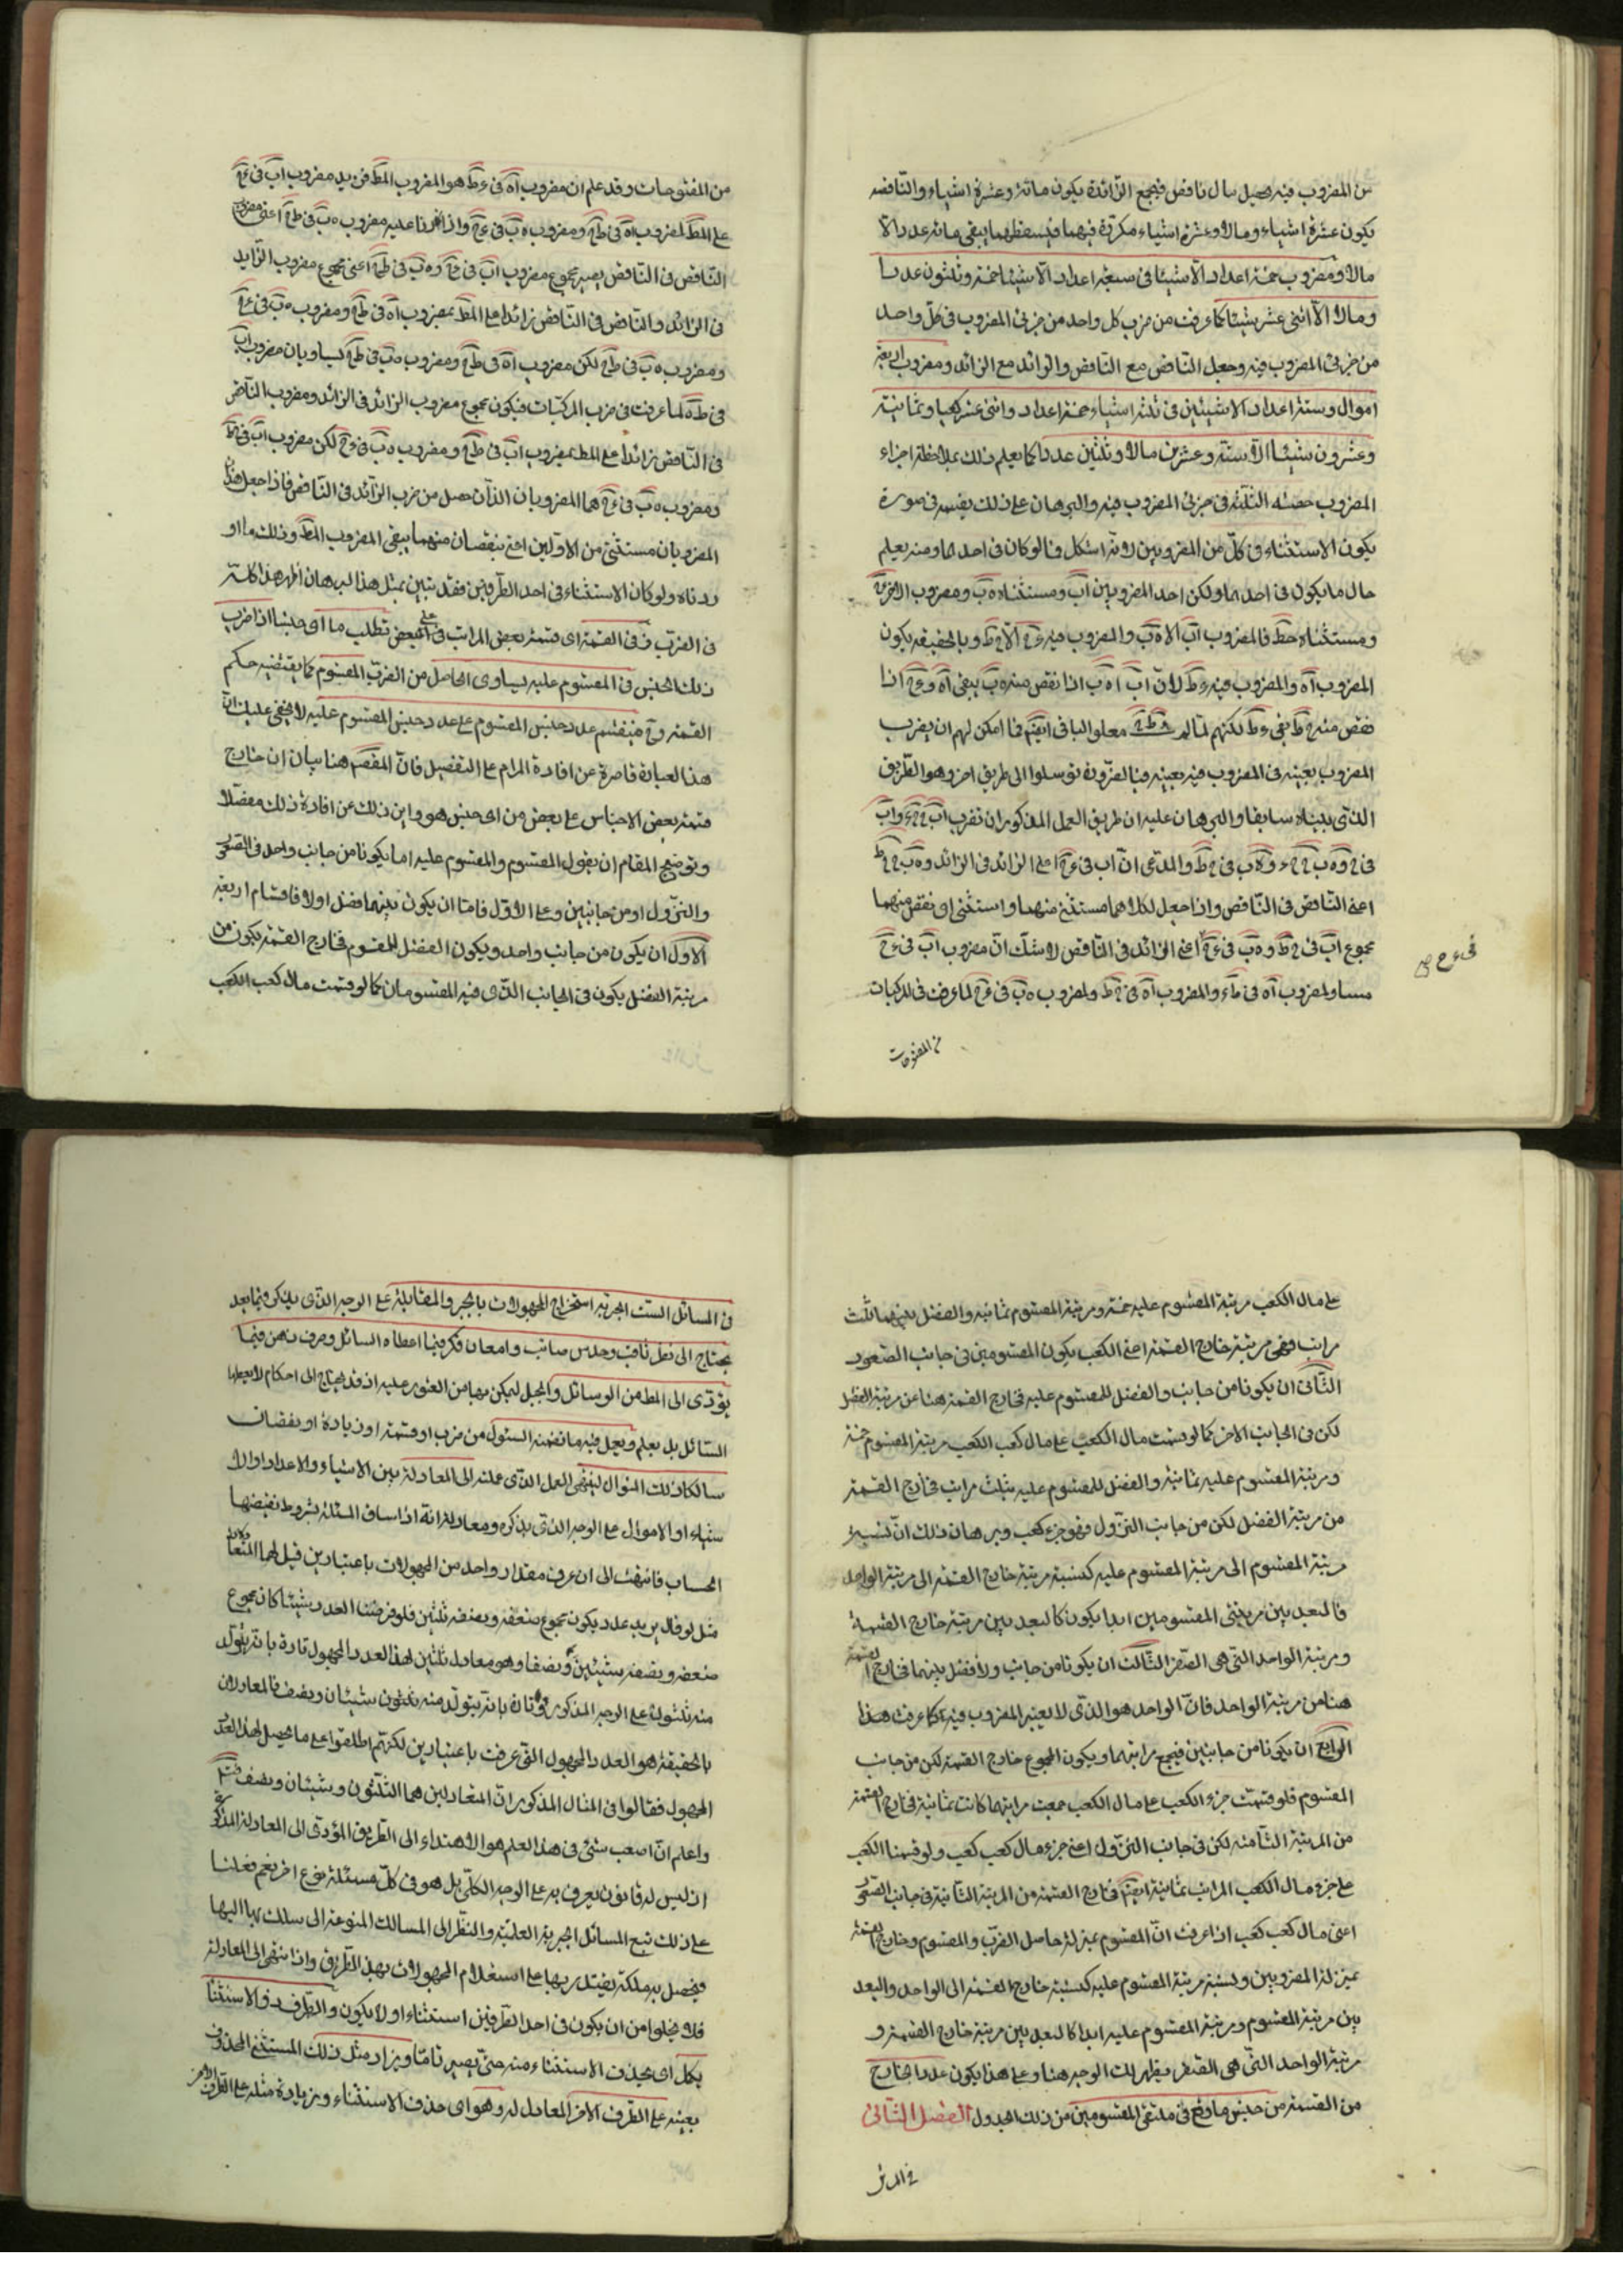 من المضروب فيه يحصل مال ناقص فيجمع الزائدة يكون مائة وعشرة اشياء والناقصه
يكون عشرة اشياء ومالا وعشرة اشياء مكررة فيهما فيسقطهما يبقى مائه عددا الا
مالا ومضروب خمسة اعداد الا شيئا فى سبعة اعداد الا شيئا خمسة وثلثون عددا
ومالا الا اثنى عشر شيئا كما عرفت من ضرب كل واحد من جزئى المضروب فى كل واحد
من جزئى المضروب فيه وجعل الناقص مع الناقص والزائد مع الزائد ومضروب اربعة
اموال وستة اعداد الا شيئين فى ثلثة اشياء الا خمسة اعداد واثنى عشر كعبا وثمانية
وعشرون شيئا الا ستة وعشرين مالا وثلثين عددا كما يعلم ذلك بملاحظة اجزاء
المضروب حصته الثلثة فى جزئى المضروب فيه والبرهان على ذلك يفسر فى صورة
يكون الاستثناء فى كل من المضروبين لانه اشكل مما لو كان فى احدهما ومنه يعلم
حال ما يكون فى احدهما وليكن احد المضروبين اب ومستثناه ه ب ومضروب الاخر ء ح
ومستثناه ح ط فالمضروب اب الا ه ب والمضروب فيه ء ح الا ح ط وبالحقيقه يكون
المضروب اه والمضروب فيه ء ط لان اب اه ب اذا نقص منه ه ب يبقى اه و ء ح اذا
نقص منه ح ط بقى ء ط لكنهم لما لم معلو الباقى ايضم فما امكن لهم ان يضرب
المضروب بعينه فى المضروب فيه بعينه فبالضرورة توسلوا الى طريق اخر وهو الطريق
الذى بيناه سابقا والبرهان عليه ان طريق العمل المذكور ان نضرب اب فى ح ء واب
فى ح ط والمدعى ان اب فى ء ح اعنى الزائد فى الزائد و ه ب فى ح ط
اعنى الناقص فى الناقص واذا جعل لكلاهما مستثنى منهما واستثنى او نقص منهما
مجموع اب فى ح ط و ه ب فى ء ح اعنى الزائد فى الناقص لا شك ان مضروب اب فى ء ح
مساو لمضروب اه فى ط ء والمضروب اه فى ح ط ولمضروب ه ب فى ء ح لما عرفت فى المركبات
فى ء ح
من المفتوحات
من المفتوحات وقد علم ان مضروب اه فى ء ط هو المضروب المط فيزيد مضروب اب فى ء ح
على المط لمضروب اه فى ط ح ومضروب ه ب فى ء ح واذا زدنا عليه مضروب ه ب فى ط ح اعنى مضروب
الناقص فى الناقص يصير مجموع مضروب اب فى ء ح و ه ب فى ط ح اعنى مجموع مضروب الزايد
فى الزائد والناقص فى الناقص زائدا على المط بمضروب اه فى ط ح ومضروب ه ب فى ء ح
ومضروب ه ب فى ط ح لكن مضروب اه فى ط ح ومضروب ه ب فى ط ح يساويان مضروب اب
فى ط ح لما عرفت فى ضرب المركبات فيكون مجموع مضروب الزائد فى الزائد ومضروب الناقص
فى الناقص زائدا على المط بمضروب اب فى ط ح ومضروب ه ب فى ء ح لكن مضروب اب فى ط ح
ومضروب ه ب فى ء ح هما المضروبان اللذان حصل من ضرب الزائد فى الناقص فاذا جعل هذان
المضروبان مستثنى من الاولين اعنى ينقصان منهما يبقى المضروب المط وذلك ما او
ردناه ولو كان الاستثناء فى احد الطرفين فقد تبين بمثل هذا البرهان اظهر هذا كله
فى الضرب ف فى القسمة اى قسمة بعض المراتب على بعض تطلب ما اى جنسا اذا ضرب
ذلك الجنس فى المقسوم عليه يساوى الحاصل من الضرب المقسوم كما يقتضيه حكم
القسمة وح فينقسم عدد جنس المقسوم على عدد جنس المقسوم عليه لا يخفى عليك ان
هذا لعبارة قاصرة عن افادة المرام على التفصيل فان المقصم هنا بيان ان خارج
قسمة بعض الاجناس على بعض من اى جنس هو واين ذلك عن افادة ذلك مفصلا
وتوضيح المقام ان يقول المقسوم والمقسوم عليه اما يكونا من جانب واحد فى الصعود
والنزول او من جانبين وعلى الاول فاما ان يكون بينهما فضل اولا فاقسام اربعة
الاول ان يكون من جانب واحد ويكون الفضل للمقسوم فخارج القسمة يكون من
مرتبة الفضل يكون فى الجانب الذى فيه المقسومان كما لو قسمت مال كعب الكعب
على مال الكعب مرتبة المقسوم عليه خمسة ومرتبة المقسوم ثمانية والفضل بينهما ثلث
مراتب فهى مرتبة خارج القسمة اعنى الكعب يكون المقسومين فى جانب الصعود
الثانى ان يكونا من جانب والفضل للمقسوم عليه فخارج القسمة هنا من مرتبة الفضل
لكن فى الجانب الاخر كما لو قسمت مال الكعب على مال كعب الكعب مرتبة المقسوم خمسة
ومرتبة المقسوم عليه ثمانية والفضل للمقسوم عليه بثلث مراتب فخارج القسمة
من مرتبة الفضل لكن من جانب النزول فهو جزء كعب وبرهان ذلك ان نسبة
مرتبة المقسوم الى مرتبة المقسوم عليه كنسبة مرتبة خارج القسمة الى مرتبة الواحد
فالبعد بين مرتبتى المقسومين ابدا يكون كالبعد بين مرتبة خارج القسمة
ومرتبة الواحد التى هى الصفر الثالث ان يكونا من جانب ولا فضل بينهما فخارج القسمة
هنا من مرتبة الواحد فان الواحد هو الذى لا يغير المضروب فيه كما عرفت هذا
الرابع ان يكونا من جانبين فيجمع مراتبهما ويكون المجموع خارج القسمة لكن من جانب
المقسوم فلو قسمت جزء الكعب على مال الكعب جمعت مراتبهما كانت ثمانية فخارج القسمة
من المرتبة الثامنه لكن فى جانب النزول اعنى جزء مال كعب كعب ولو قسمنا الكعب
على جزء مال الكعب المراتب ثمانية ايضم فخارج القسمة من المرتبة الثانية فى جانب الصعود
اعنى مال كعب كعب اذا عرفت ان المقسوم بمنزلة حاصل الضرب والمقسوم وخارج القسمة
بمنزلة المضروبين ونسبة مرتبة المقسوم عليه كنسبة خارج القسمة الى الواحد والبعد
بين مرتبة المقسوم ومرتبة المقسوم عليه ابدا كالبعد بين مرتبة خارج القسمة و
مرتبة الواحد التى هى الصفر يظهر لك الوجه هنا وعلى هذا يكون عدد الخارج
من القسمة من جنس ما وقع فى ملتقى المقسومين من ذلك الجدول الفصل الثانى
فى المسائل
فى المسائل الست الجبرية استخراج المجهولات بالجبر والمقابلة على الوجه الذى يذكر فيما بعد
يحتاج الى نظر ثاقب وحدس صائب وامعان فكر فيما اعطاه السائل وصرف ذهن فيما
يؤدى الى المط من الوسائل والجبل ليمكن بها من العثور عليه اذ قد يحتاج الى احكام لا يعطيها
السائل بل يعلم ويعمل فيه ما تضمنه السئول من ضرب او قسمة او زيادة او نقصان
سالكا ذلك المنوال لينتهى العمل الذى عمله الى المعادلة بين الاشياء والاعداد او الا
شياء او الاموال على الوجه الذى يذكره ومعادلة انه اذا ساق المسئلة بشروط نقيضها
الحساب فانتهت الى ان عرف مقدار واحد من المجهولات باعتبارين قيل لهما المتعادلان
مثل لو قال يريد عدد يكون مجموع ضعفه ونصفه ثلثين فلو فرضنا العدد شيئا كان مجموع
ضعفه ونصفه شيئين ونصفا وهو معادل ثلثين لهذا العدد المجهول تارة بانه يتولد
منه ثلثون على الوجه المذكور وتارة بانه يتولد منه ثلثون شيئان ونصف فالمعادلان
بالحقيقة هو العدد المجهول الذى عرفت باعتبارين لكنهم اطلقوا على ما يحصل لهذا العدد
المجهول فقالوا فى المثال المذكور ان المتعادلين هما الثلثون وشيئان ونصف
واعلم ان اصعب شئ فى هذا العلم هو الاهتداء الى الطريق المؤدى الى المعادلة المذكورة
اذ ليس له قانون يعرف به على الوجه الكلى بل هو فى كل مسئلة بنوع اخر نعم فعلنا
على ذلك تتبع المسائل الجبرية العلمية والنظر الى المسالك المنوعة الى سلك بها اليها
فيحصل به ملكة يقتدر بها على استعلام المجهولات بهذا الطريق واذا انتهى الى المعادلة
فلا يخلوا من ان يكون فى احد الطرفين استثناء او لا يكون والطرف ذو الاستثناء
يكمل اى يحذف الاستثناء منه حتى يصير تاما ويزاد مثل ذلك المستثنى المحذوف
بعينه على الطرف الاخر المعادل له وهو اى حذف الاستثناء وبزيادة مثله على الطرف الاخر